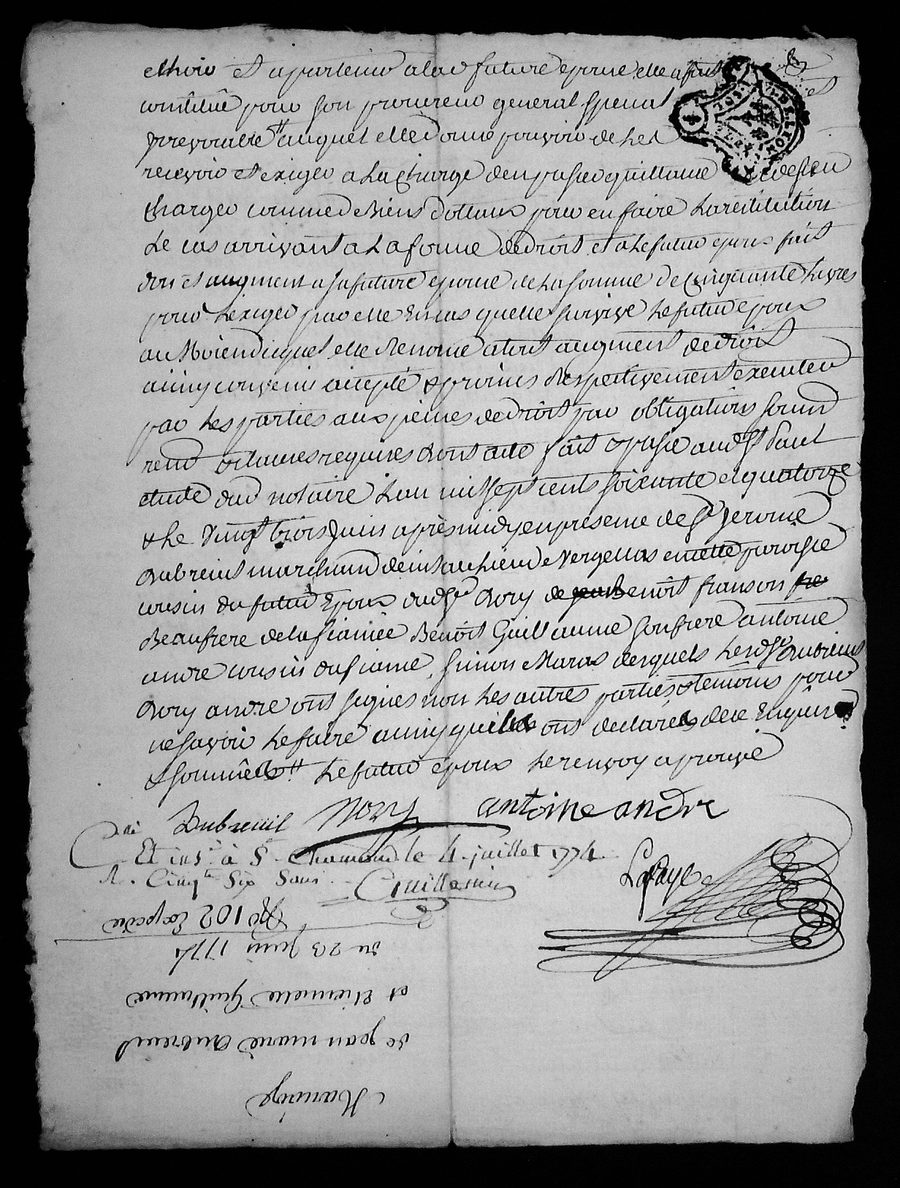 echoir et apartenir a la d future epouse elle a fait et
constitué pour son procureur general special
irrevocable auquel elle donne pouvoir de les
recevoir et exiger a la charge d'en passer quittance et de s'en
charger comme de biens dottaux pour en faire la restitution
le cas arrivant a la forme de droit, et a le futur epoux fait
don et augment a sa future epouse de la somme de cinquante livres
pour l'exiger par elle en cas quelle survive le futur epoux
au moien dicquel elle renonce a tout augment de droit
ainsy convenu accepté & promis respectivement executer
par les parties aux peines de droit par obligations soum
renon et clauses requises dont acte fait & passé aud St Paul
etude dud notaire l'an mil sept cents soixante et quatorze
& le vingt trois juin après midy en presence de Sr Jerome
Dubreuil marchand de au lieu de Vergellas cousin
cousin du futur epoux dud Sr Nory Benoit franson
Beaufrere de la fiancée Benoit Guillaume son frere antoine
andre cousin du fiancé, Simon Maras desquels lesd Sr Dubreuil
Nory andre ont signés non les autres parties & temoins pour
ne savoir le faire ainsy quils ont declarés de ce enquis
& sommés le futur epoux le renvoy aprouvé
Dubreuil Nory antoine andre
Et ins.é à St Chamond le 4 juillet 1774
R. Cinq.te Six Sous
Guillemin
Lafaye
No 102 Expedié
du 23 juin 1774
et Etiennette Guillaume
de jean marie dubreuil
Mariage